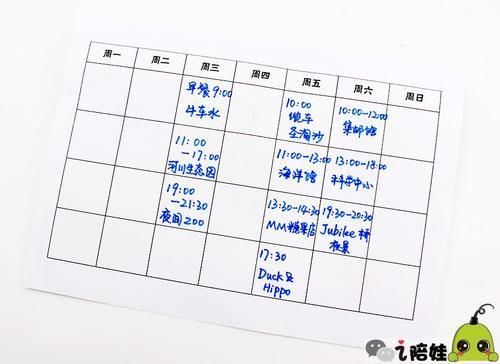 周一 周二 周三 周四 周五 周六 周日
早餐 9:00
牛车水
10:00
缆车
圣淘沙
10:00-12:00
集邮馆
11:00
-17:00
河川生态园
11:00-13:00
海洋馆
13:00-18:00
科学中心
19:00
-21:30
夜间ZOO
13:30-14:30
MM糖果店
19:30-20:30
Jubilee桥
夜景
17:30
Duck&
Hippo
i陪娃